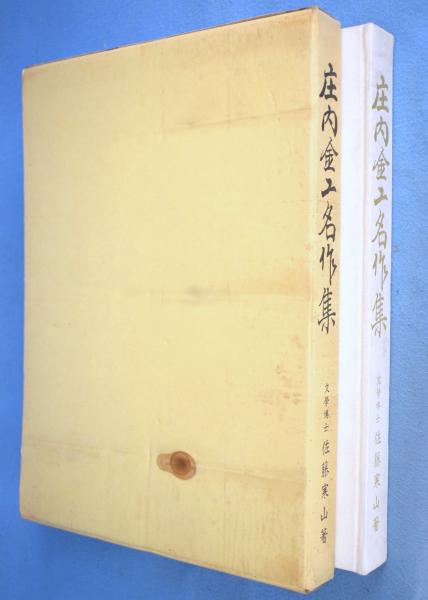 庄内金工名作集
文學博士 佐藤寒山著
庄内金工名作集
文學博士 佐藤寒山著